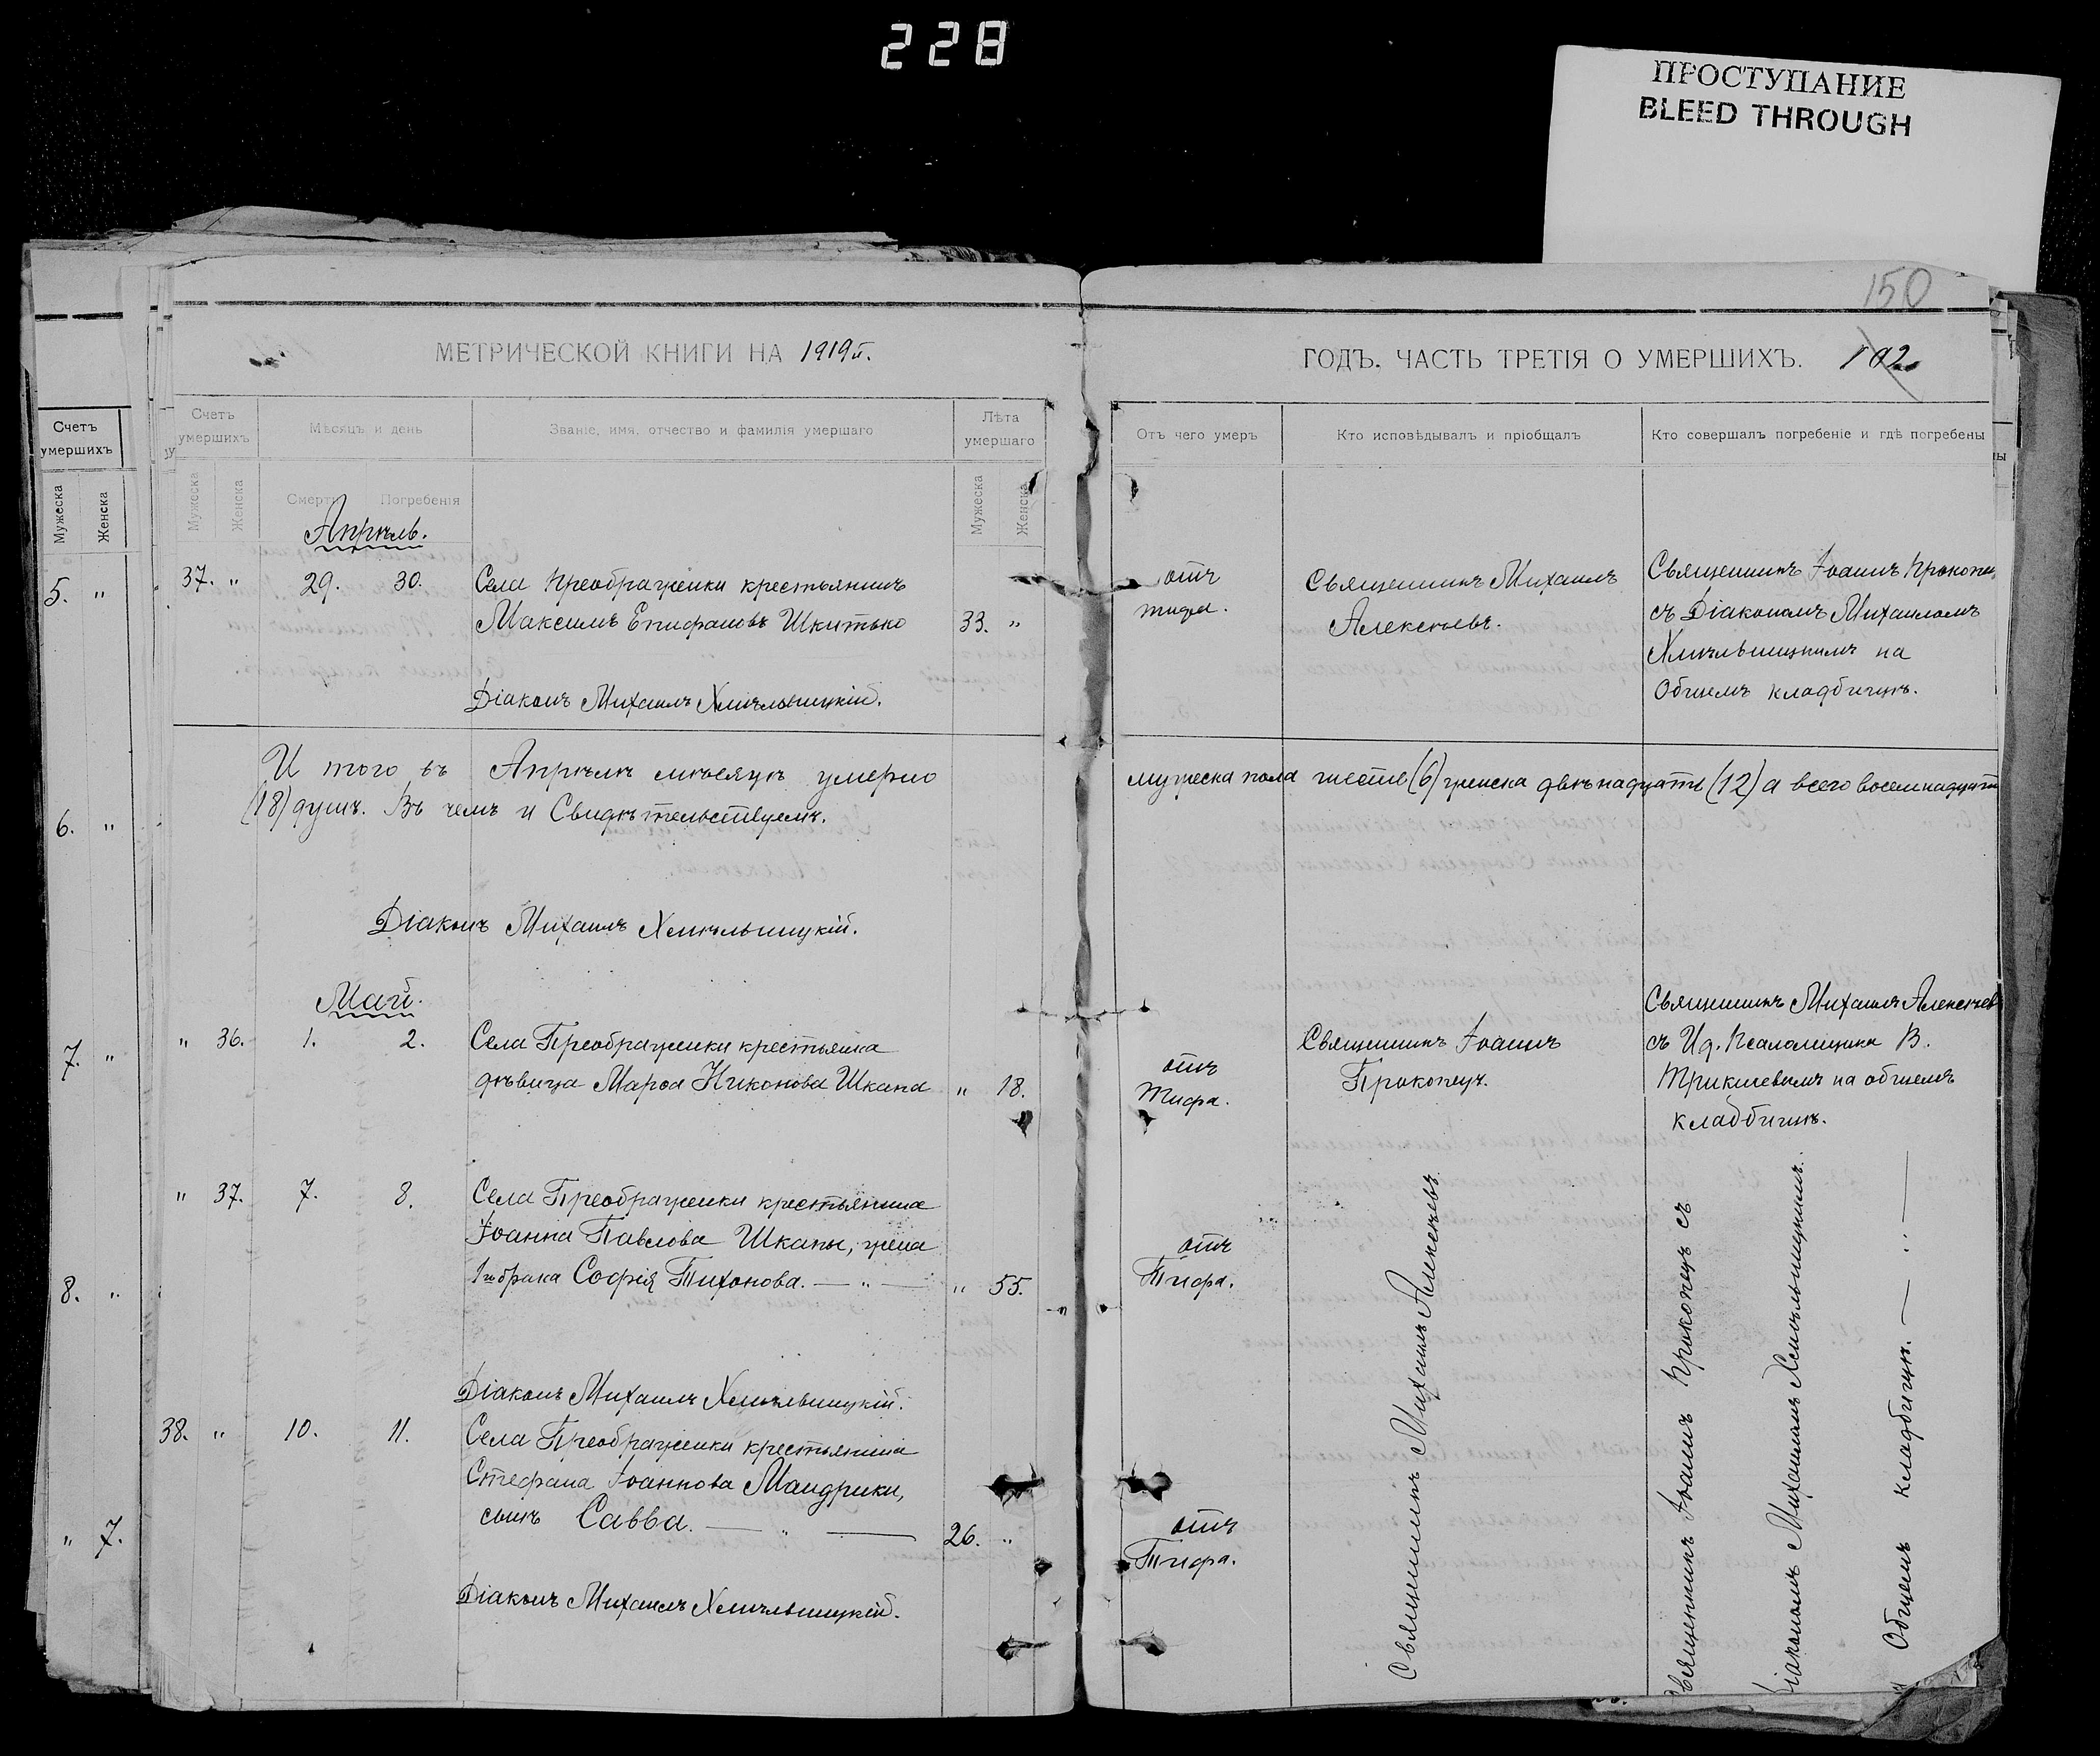 228
ПРОСТУПАНИЕ
BLEED THROUGH
150
МЕТРИЧЕСКОЙ КНИГИ НА 1919й.
ГОДЪ, ЧАСТЬ ТРЕТІЯ О УМЕРШИХЪ. 102
Счетъ умершихъ
Мужеска
Женска
5. "
6. "
7. "
8. "
" 7.
Счетъ умершихъ
Мѣсяцъ и день
Званіе, имя, отчество и фамилія умершаго
Лѣта умершаго
Отъ чего умеръ
Кто исповѣдывалъ и пріобщалъ
Кто совершалъ погребеніе и гдѣ погребены
Мужеска
Женска
Смерти
Погребенія
Мужеска
Женска
Апрѣль.
37. " 29. 30. Села Преображенки крестьянинъ
Максимъ Епифановъ Шкитько 33. "
Діаконъ Михаилъ Хмѣльницкій.
отъ
тифа.
Священникъ Михаилъ
Алексѣевъ.
Священникъ Іоаннъ Прокопец
съ Діакономъ Михаиломъ
Хмѣльницкимъ на
Общемъ кладбищѣ.
И того въ Апрѣлѣ мѣсяцѣ умерло мужеска пола шесть (6) женска двѣнадцать (12) а всего восемнадцать
(18) душъ. Въ чемъ и Свидѣтельствуемъ.
Діаконъ Михаилъ Хмѣльницкій.
Май.
" 36. 1. 2. Села Преображенки крестьянка
дѣвица Марѳа Никонова Шкапа " 18.
отъ
Тифа.
Священникъ Іоаннъ
Прокопецъ.
Священникъ Михаилъ Алексѣев
съ И.д. Псаломщика В.
на общемъ
кладбищѣ.
" 37. 7. 8. Села Преображенки крестьянина
Іоанна Павлова Шкапы, жена
1го брака Софія Тихонова. — " — " 55.
отъ
Тифа.
Діаконъ Михаилъ Хмѣльницкій.
38. " 10. 11. Села Преображенки крестьянина
Стефана Іоаннова Мандрики,
сынъ Савва. — " — 26. "
отъ
Тифа.
Діаконъ Михаилъ Хмѣльницкій.
Священникъ Михаилъ Алексѣевъ.
Священникъ Іоаннъ Прокопецъ съ
Діакономъ Михаиломъ Хмѣльницкимъ.
Общемъ кладбищѣ. — " —